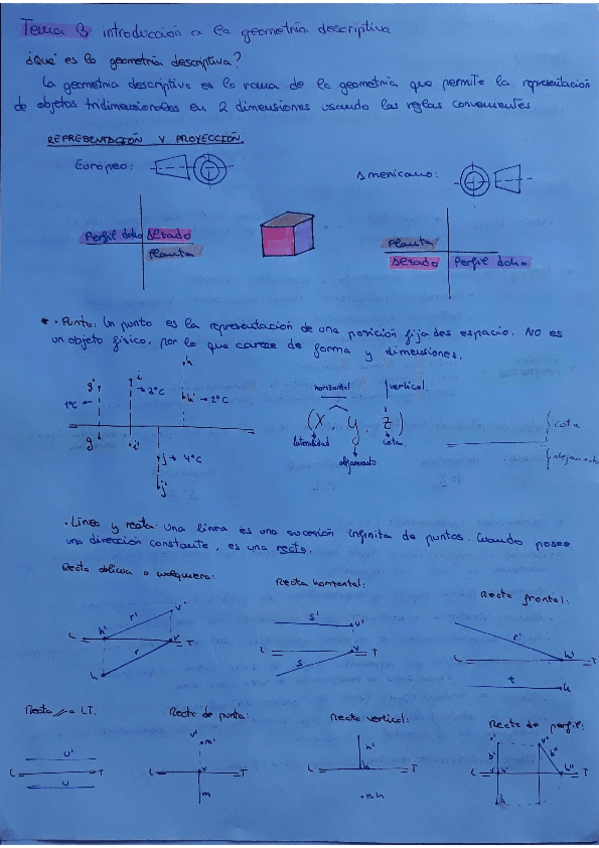 Tema 3 introducción a la geometría descriptiva
¿Qué es la geometría descriptiva?
La geometría descriptiva es la rama de la geometría que permite la representación
de objetos tridimensionales en 2 dimensiones usando las reglas convenientes.
REPRESENTACIÓN Y PROYECCIÓN
Europeo:
Americano:
Perfil dcho Alzado
Planta
Planta
Alzado Perfil dcho
* · Punto: Un punto es la representación de una posición fija des espacio. NO es
un objeto físico, por lo que carece de forma y dimensiones.
g' 1ºC g
i → 2ºC i'
h h' → 2ºC
j → 4ºC j'
horizontal vertical
(X, y, z)
lateralidad alejamiento cota
cota
alejamiento
· Línea y recta: una línea es una sucesión infinita de puntos. Cuando posee
una dirección constante, es una recta.
Recta oblicua o cualquiera:
Recta horizontal:
Recta frontal:
r' v' L h' r v T h
s' v' L v T s
r' L h' T t h
Recta // a LT:
Recta de punta:
Recta vertical:
Recta de perfil:
U' L T U
v' m' L v T m
h' L h T
L T